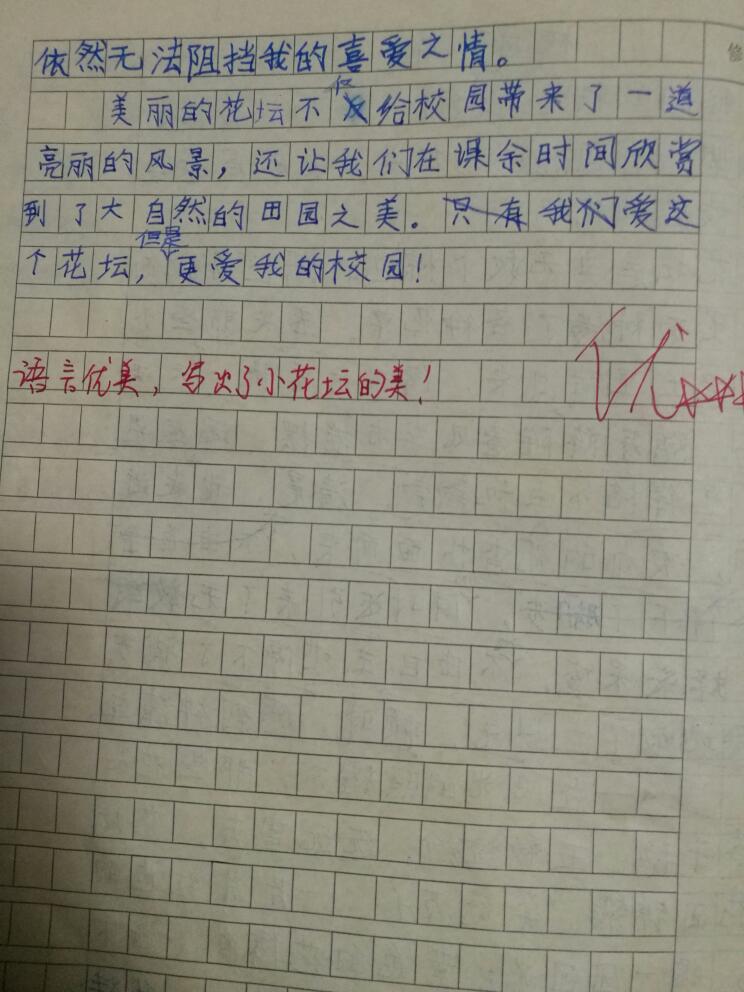 依然无法阻挡我的喜爱之情。
美丽的花坛不仅给校园带来了一道
亮丽的风景，还让我们在课余时间欣赏
到了大自然的田园之美。只有我们爱这
个花坛，但是更爱我的校园！
语言优美，写出了小花坛的美！
优